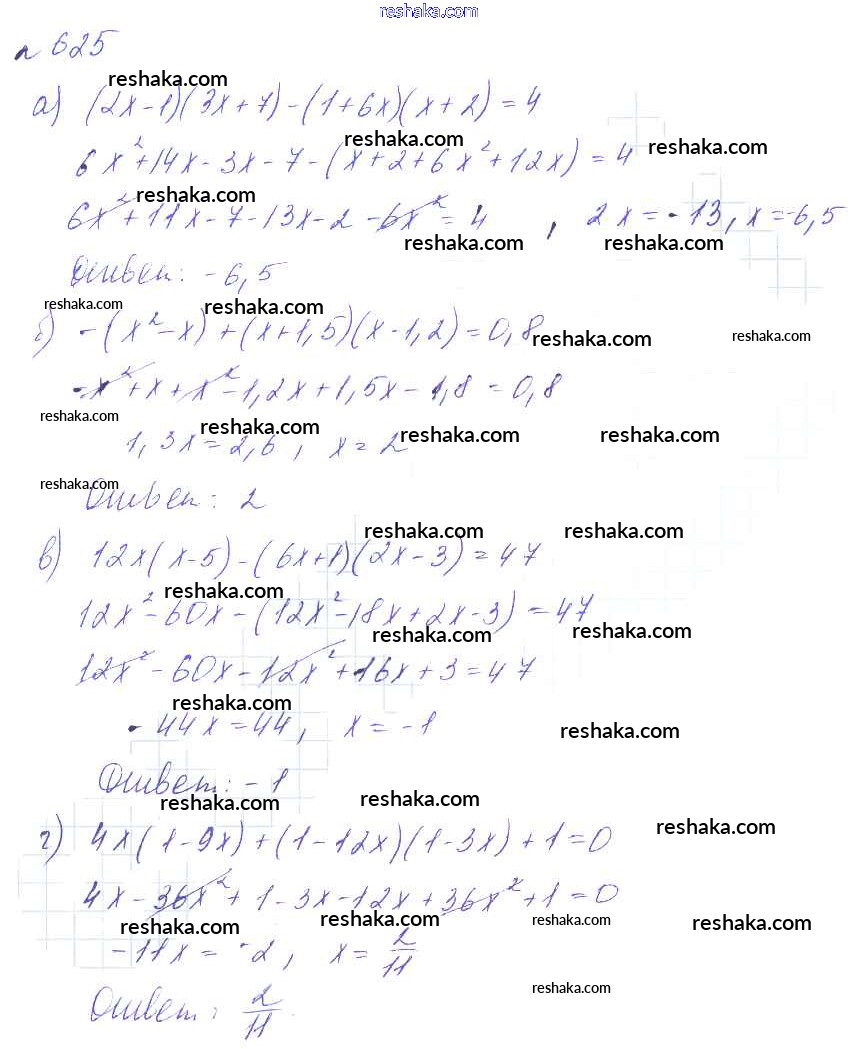 reshaka.com
n 625
reshaka.com
а) (2x-1)(3x+7)-(1+6x)(x+2)=4
reshaka.com reshaka.com
6x²+14x-3x-7-(x+2+6x²+12x)=4
reshaka.com
6x²+11x-7-13x-2-6x²=4 , 2x=-13, x=-6,5
reshaka.com reshaka.com
Ответ: -6,5
reshaka.com reshaka.com
б) -(x²-x)+(x+1,5)(x-1,2)=0,8
reshaka.com reshaka.com
-x²+x+x²-1,2x+1,5x-1,8=0,8
reshaka.com reshaka.com reshaka.com reshaka.com
1,3x=2,6, x=2
reshaka.com
Ответ: 2
reshaka.com reshaka.com
в) 12x(x-5)-(6x+1)(2x-3)=47
reshaka.com
12x²-60x-(12x²-18x+2x-3)=47
reshaka.com reshaka.com
12x²-60x-12x²+16x+3=47
reshaka.com
-44x=44, x=-1
reshaka.com
Ответ: -1
reshaka.com reshaka.com
г) 4x(1-9x)+(1-12x)(1-3x)+1=0
reshaka.com
4x-36x²+1-3x-12x+36x²+1=0
reshaka.com reshaka.com reshaka.com reshaka.com
-11x=-2, x=2/11
reshaka.com
Ответ: 2/11